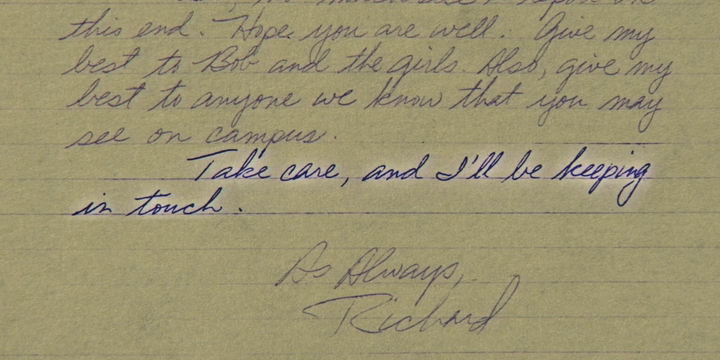 this end. Hope you are well. Give my
best to Bob and the girls. Also, give my
best to anyone we know that you may
see on campus.
Take care, and I'll be keeping
in touch.
As Always,
Richard